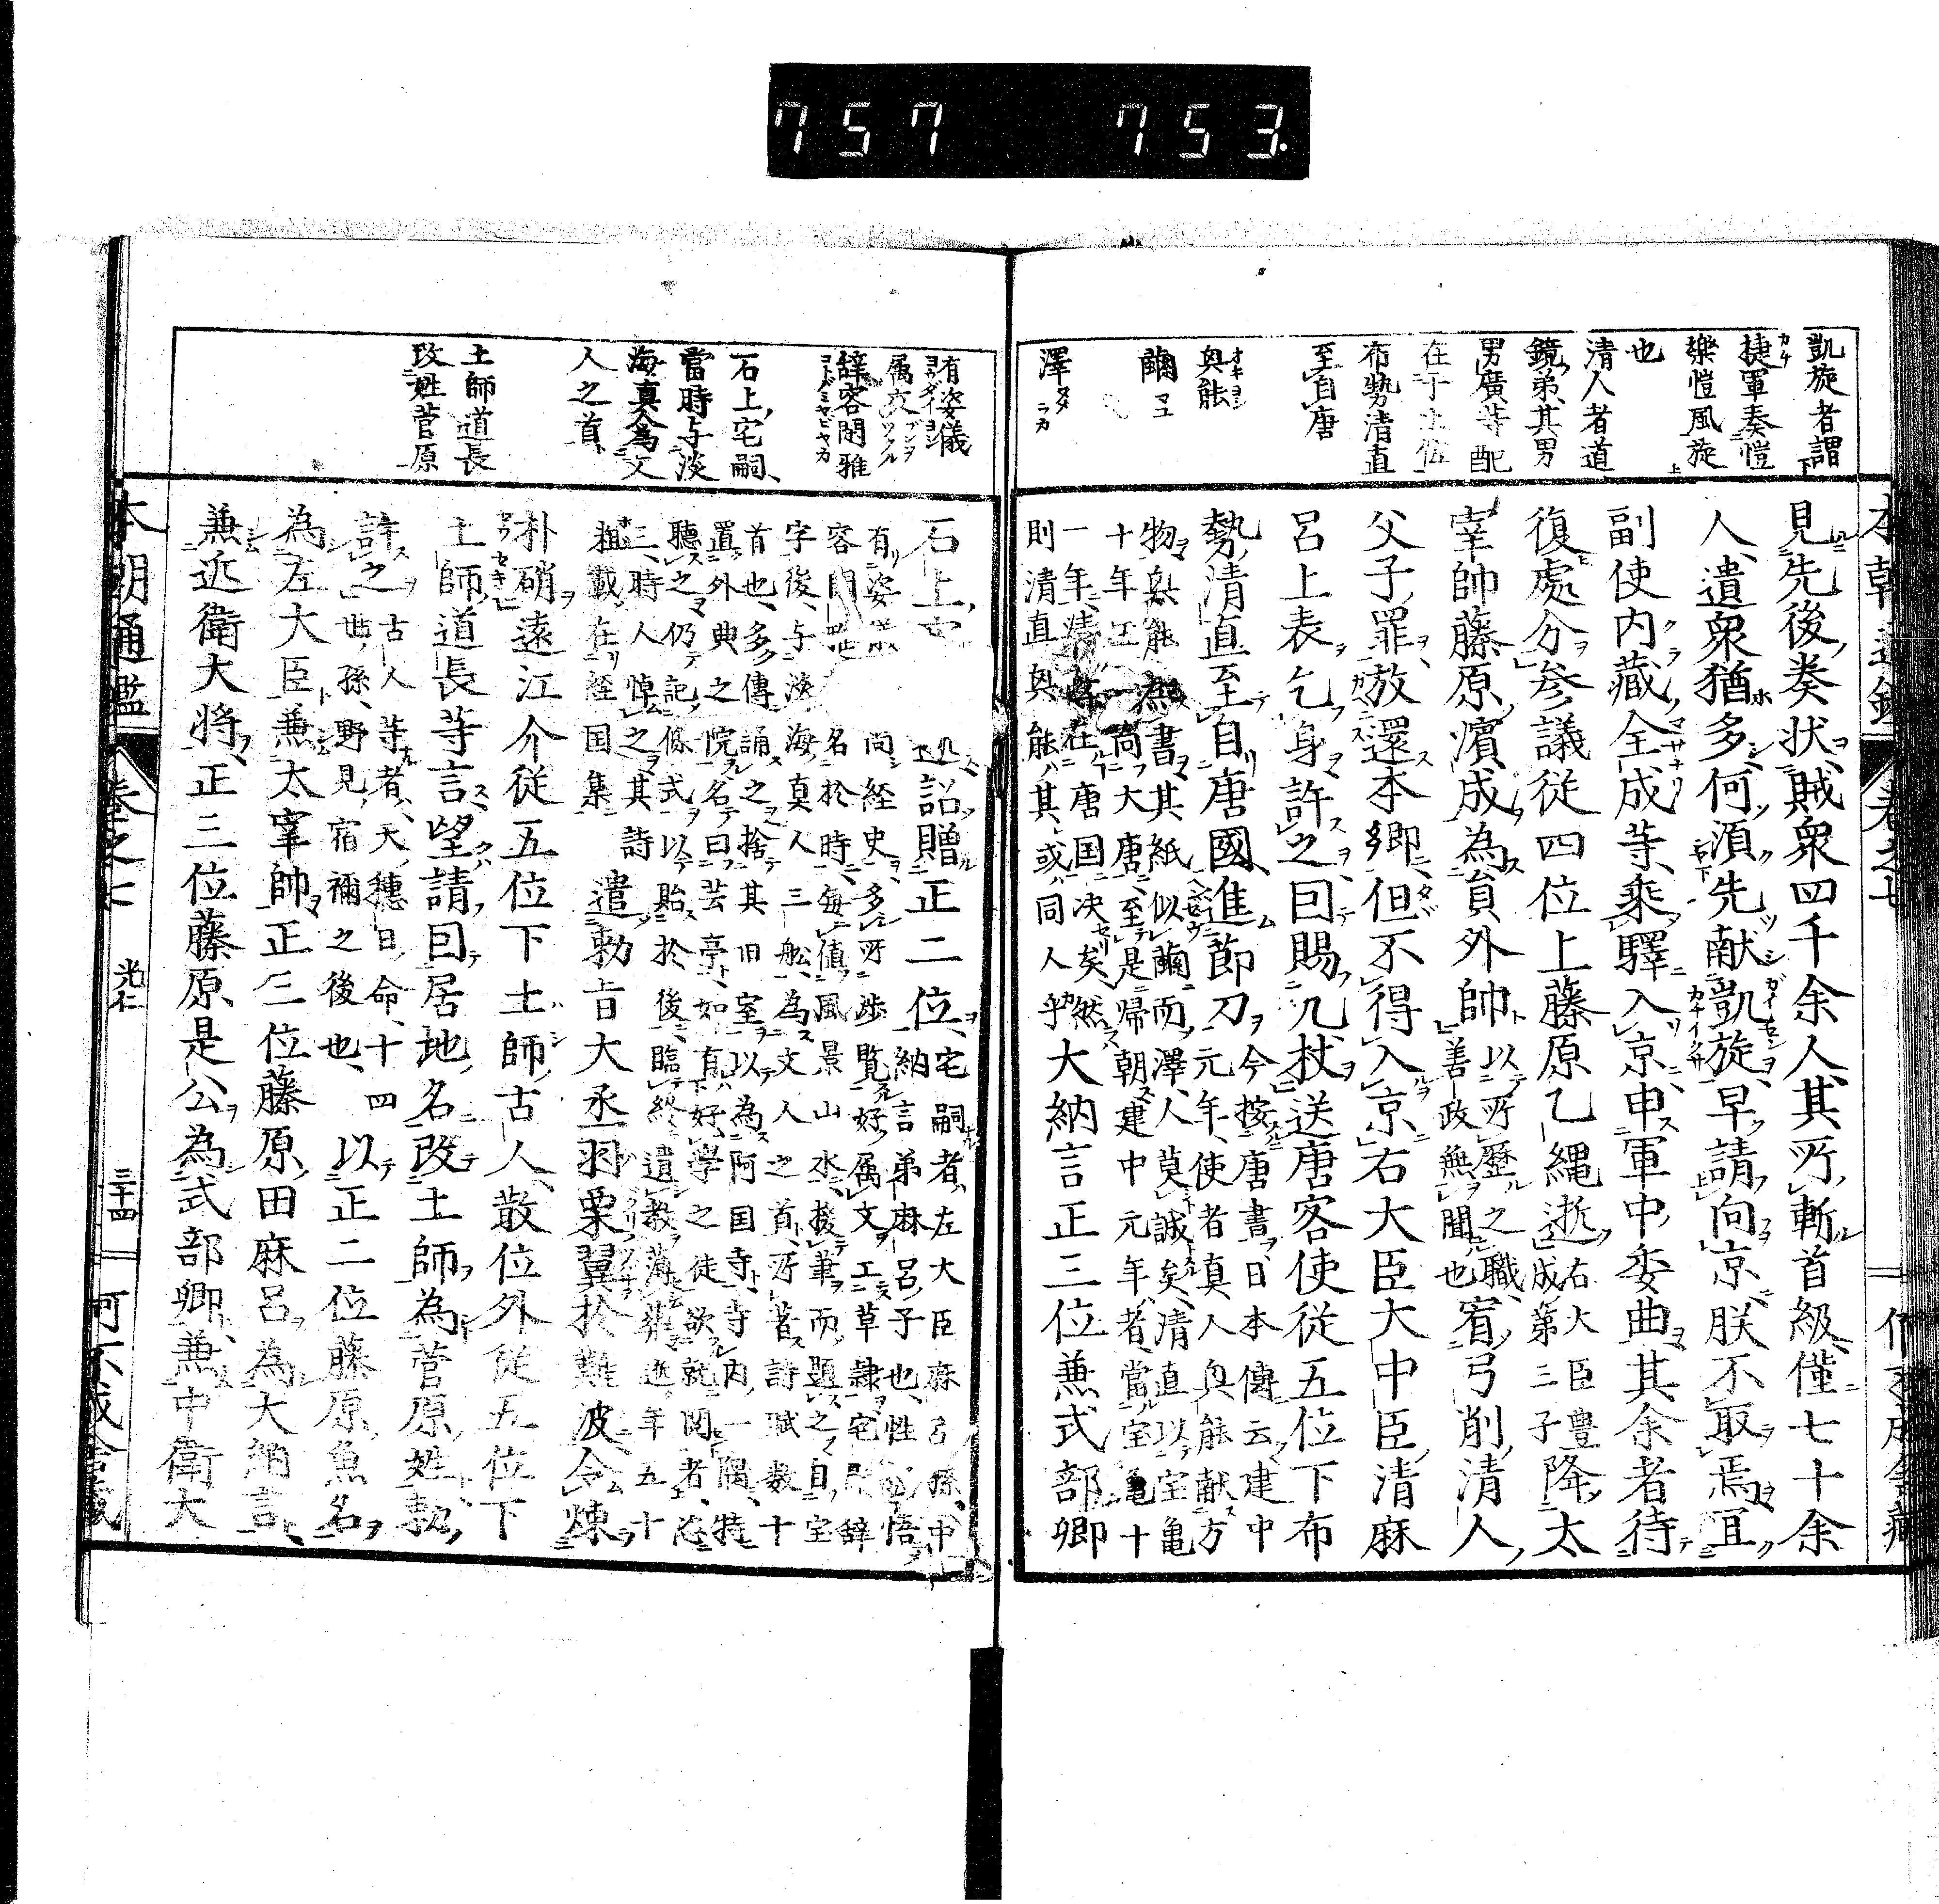 757 753.
凱旋者謂
捷軍奏愷
樂愷風旋
也
清人者道
鏡弟其男
男廣等配
在于土佐
布勢清直
至自唐
與能
繭
澤
本朝通鑑 卷之七
見先後奏狀賊衆四千余人其所斬首級僅七十余
人遺衆猶多何須先献凱旋早請向京朕不取焉冝
副使内藏全成等乘驛入京申軍中委曲其余者待
復處分參議従四位上藤原乙縄逝右大臣豊
成第三子降太
宰帥藤原濱成為員外帥以所歷之職
善政無聞也宥弓削清人
父子罪放還本郷但不得入京右大臣大中臣清麻
呂上表乞身許之因賜几杖送唐客使従五位下布
勢清直至自唐國進節刀今按唐書日本傳云建中
元年使者真人興能献方
物興能 書其紙似繭而澤人莫誠矣清直以宝亀
十年 大唐至是帰朝建中元年者當宝亀十
一年 在唐国决矣然
則清直與能其或同人乎大納言正三位兼式部卿
有姿儀
属文
辞容閑雅
石上宅嗣
當時与淡
海真人為文
人之首
土師道長
改姓菅原
石上 詔贈正二位宅嗣者左大臣麻呂孫中
納言弟麻呂子也性 悟
有姿 尚経史多所渉覧好属文工草隷宅 辞
容閑 名於時毎值風景山水援筆而題之自宝
字後与淡海真人三舩為文人之首所著詩賦数十
首也多傳誦之捨其旧室以為阿国寺寺内一隅特
置外典之院名曰芸亭如有好學之徒欲就閲者恣
聽之仍記條式以貽於後臨終遺教薄葬逝年五十
三時人悼之其詩
粗載在経国集遣勅旨大丞羽栗翼於難波令煉
朴硝遠江介従五位下土師古人散位外従五位下
土師道長等言望請因居地名改土師為菅原姓勅
許之古人等者天穂日命十四
世孫野見宿禰之後也以正二位藤原魚名
為左大臣兼太宰帥正三位藤原田麻呂為大納言
兼近衛大将正三位藤原是公為式部卿兼中衛大
本朝通鑑 卷之七 光仁 三十四